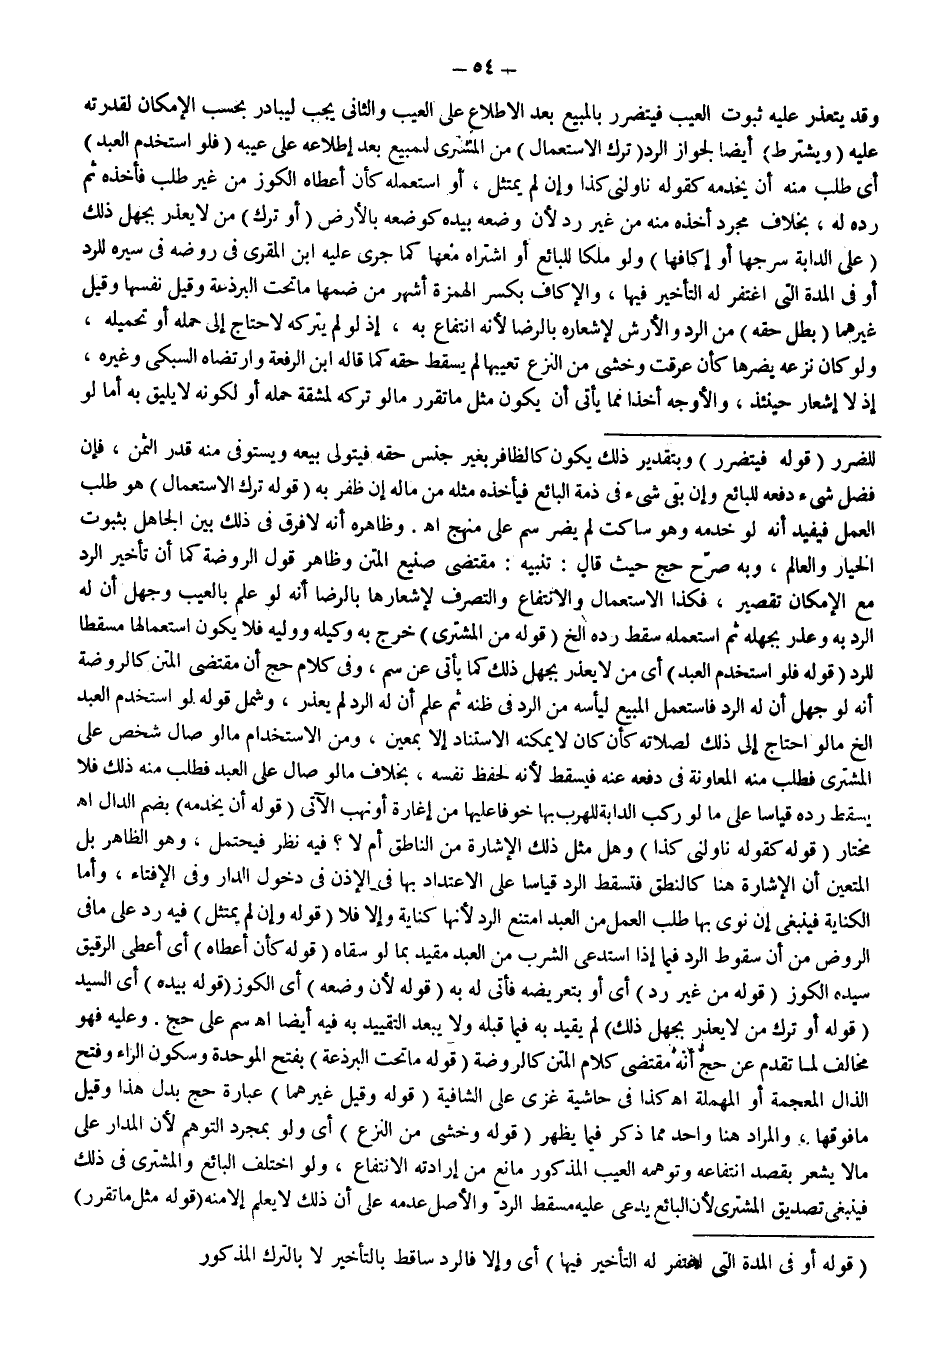 – ٥٤ –
وقد يتعذر عليه ثبوت العيب فيتضرر بالمبيع بعد الاطلاع على العيب والثانى يجب ليبادر بحسب الإمكان لقدرته
عليه ( ويشترط ) أيضا لجواز الرد ( ترك الاستعمال ) من المشترى للمبيع بعد إطلاعه على عيبه ( فلو استخدم العبد )
أى طلب منه أن يخدمه كقوله ناولنى كذا وإن لم يمتثل ، أو استعمله كأن أعطاه الكوز من غير طلب فأخذه ثم
رده له ، بخلاف مجرد أخذه منه من غير رد لأن وضعه بيده كوضعه بالأرض ( أو ترك ) من لا يعذر بجهل ذلك
( على الدابة سرجها أو إكافها ) ولو ملكا للبائع أو اشتراه معها كما جرى عليه ابن المقرى فى روضه فى سيره للرد
أو فى المدة التى اغتفر له التأخير فيها ، والإكاف بكسر الهمزة أشهر من ضمها ماتحت البرذعة وقيل نفسها وقيل
غيرهما ( بطل حقه ) من الرد والأرش لإشعاره بالرضا لأنه انتفاع به ، إذ لو لم يتركه لاحتاج إلى حمله أو تحميله ،
ولو كان نزعه يضرها كأن عرقت وخشى من النزع تعيبها لم يسقط حقه كما قاله ابن الرفعة وارتضاه السبكى وغيره ،
إذ لا إشعار حينئذ ، والأوجه أخذا مما يأتى أن يكون مثل ماتقرر مالو تركه لمشقة حمله أو لكونه لايليق به أما لو
للضرر ( قوله فيتضرر ) وبتقدير ذلك يكون كالظافر بغير جنس حقه فيتولى بيعه ويستوفى منه قدر الثمن ، فإن
فضل شىء دفعه للبائع وإن بقى شىء فى ذمة البائع فيأخذه مثله من ماله إن ظفر به ( قوله ترك الاستعمال ) هو طلب
العمل فيفيد أنه لو خدمه وهو ساكت لم يضر سم على منهج اه . وظاهره أنه لافرق فى ذلك بين الجاهل بثبوت
الخيار والعالم ، وبه صرّح حج حيث قال : تنبيه : مقتضى صنيع المتن وظاهر قول الروضة كما أن تأخير الرد
مع الإمكان تقصير ، فكذا الاستعمال والانتفاع والتصرف لإشعارها بالرضا أنه لو علم بالعيب وجهل أن له
الرد به وعذر بجهله ثم استعمله سقط رده الخ ( قوله من المشترى ) خرج به وكيله ووليه فلا يكون استعمالها مسقطا
للرد ( قوله فلو استخدم العبد ) أى من لايعذر بجهل ذلك كما يأتى عن سم ، وفى كلام حج أن مقتضى المتن كالروضة
أنه لو جهل أن له الرد فاستعمل المبيع ليأسه من الرد فى ظنه ثم علم أن له الرد لم يعذر ، وشمل قوله لو استخدم العبد
الخ مالو احتاج إلى ذلك لصلاته كأن كان لايمكنه الاستناد إلا بمعين ، ومن الاستخدام مالو صال شخص على
المشترى فطلب منه المعاونة فى دفعه عنه فيسقط لأنه لحفظ نفسه ، بخلاف مالو صال على العبد فطلب منه ذلك فلا
يسقط رده قياسا على ما لو ركب الدابة للهرب بها خوفا عليها من إغارة أو نهب الآتى ( قوله أن يخدمه ) بضم الدال اه
مختار ( قوله كقوله ناولنى كذا ) وهل مثل ذلك الإشارة من الناطق أم لا ؟ فيه نظر فيحتمل ، وهو الظاهر بل
المتعين أن الإشارة هنا كالنطق فتسقط الرد قياسا على الاعتداد بها فى الإذن فى دخول الدار وفى الإفتاء ، وأما
الكتابة فينبغى إن نوى بها طلب العمل من العبد امتنع الرد لأنها كناية وإلا فلا ( قوله وإن لم يمتثل ) فيه رد على مافى
الروض من أن سقوط الرد فيما إذا استدعى الشرب من العبد مقيد بما لو سقاه ( قوله كأن أعطاه ) أى أعطى الرقيق
سيده الكوز ( قوله من غير رد ) أى أو بتعريضه فأتى له به ( قوله لأن وضعه ) أى الكوز ( قوله بيده ) أى السيد
( قوله أو ترك من لايعذر بجهل ذلك ) لم يقيد به فيما قبله ولا يبعد التقييد به فيه أيضا اه سم على حج . وعليه فهو
مخالف لما تقدم عن حج أنه مقتضى كلام المتن كالروضة ( قوله ماتحت البرذعة ) بفتح الموحدة وسكون الراء وفتح
الذال المعجمة أو المهملة اه كذا فى حاشية غزى على الشافية ( قوله وقيل غيرهما ) عبارة حج بدل هذا وقيل
مافوقها ، والمراد هنا واحد مما ذكر فيما يظهر ( قوله وخشى من النزع ) أى ولو بمجرد التوهم لأن المدار على
مالا يشعر بقصد انتفاعه وتوهمه العيب المذكور مانع من إرادته الانتفاع ، ولو اختلف البائع والمشترى فى ذلك
فينبغى تصديق المشترى لأن البائع يدعى عليه مسقط الرد والأصل عدمه على أن ذلك لايعلم إلامنه ( قوله مثل ماتقرر )
( قوله أو فى المدة التى اغتفر له التأخير فيها ) أى وإلا فالرد ساقط بالتأخير لا بالترك المذكور